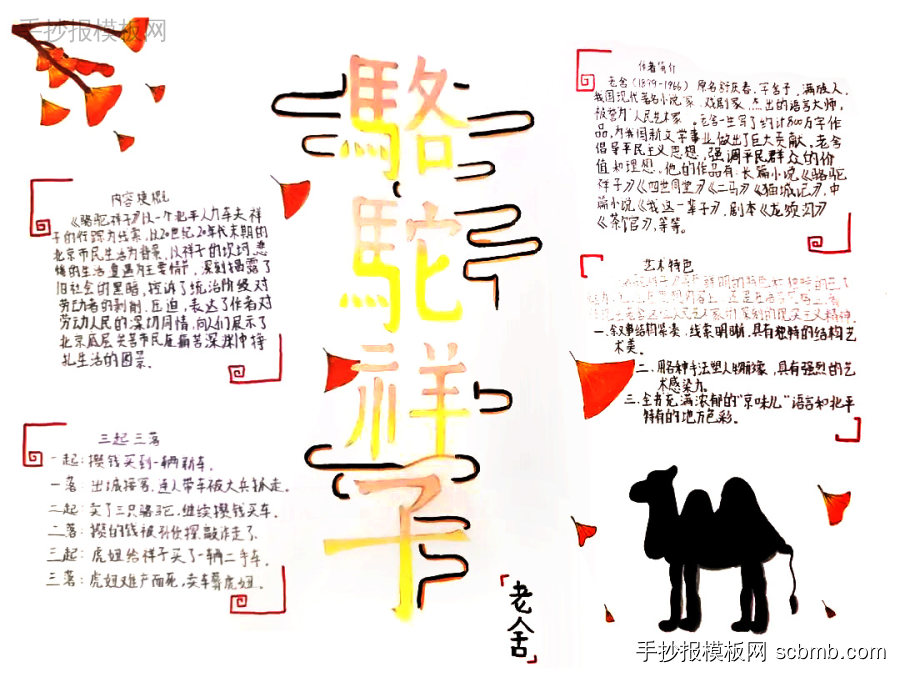 手抄报模板网
駱駝祥子
老舍
内容梗概
《骆驼祥子》以一个北平人力车夫祥
子的行踪为线索，以20世纪20年代末期的
北京市民生活为背景，以祥子的坎坷悲
惨的生活遭遇为主要情节，深刻揭露了
旧社会的黑暗，控诉了统治阶级对
劳动者的剥削、压迫，表达了作者对
劳动人民的深切同情，向人们展示了
北京底层贫苦市民在痛苦深渊中挣
扎生活的图景。
三起三落
一起：攒钱买到一辆新车。
一落：出城接客，连人带车被大兵抓走。
二起：卖了三只骆驼，继续攒钱买车。
二落：攒的钱被孙侦探敲诈走了。
三起：虎妞给祥子买了一辆二手车。
三落：虎妞难产而死，卖车葬虎妞。
作者简介
老舍（1899-1966）原名舒庆春，字舍予，满族人，
我国现代著名小说家、戏剧家、杰出的语言大师，
被誉为“人民艺术家”。老舍一生写了约计800万字作
品，为我国新文学事业做出了巨大贡献，老舍
倡导平民主义思想，强调平民群众的价
值和理想。他的作品有：长篇小说《骆驼
祥子》《四世同堂》《二马》《猫城记》，中
篇小说《我这一辈子》，剧本《龙须沟》
《茶馆》，等等。
艺术特色
现实主义精神。
一、叙事结构紧凑，线索明晰，具有独特的结构艺
术美。
二、用各种手法塑人物形象，具有强烈的艺
术感染力。
三、全书充满浓郁的“京味儿”语言和北平
特有的地方色彩。
手抄报模板网 scbmb.com